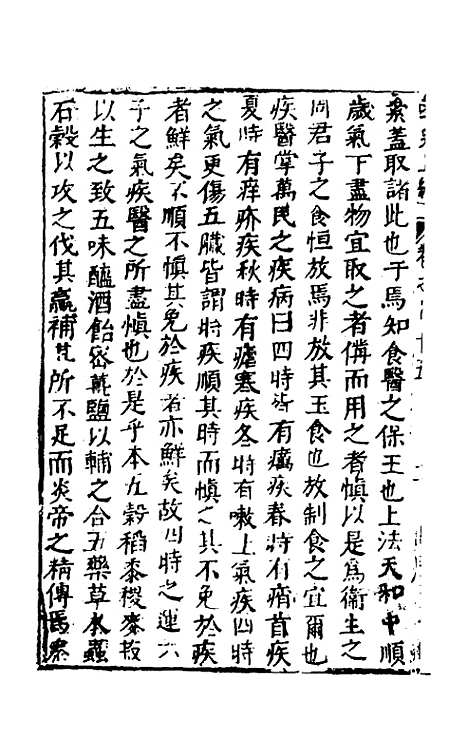 衆蓋取諸此也于焉知食醫之保王也上法天和中順
歲氣下盡物宜取之者備而用之者慎以是爲衛生之
同君子之食恒放焉非放其玉食也放制食之宜爾也
疾醫掌萬民之疾病曰四時皆有癘疾春時有痟首疾
夏時有痒疥疾秋時有瘧寒疾冬時有嗽上氣疾四時
之氣更傷五臟皆謂時疾順其時而慎之其不免於疾
者鮮矣不順不慎其免於疾者亦鮮矣故四時之運六
子之氣疾醫之所盡慎也於是乎本五穀稻黍稷麥菽
以生之致五味醯酒飴蜜薑鹽以輔之合五藥草木蟲
石穀以攻之伐其羸補其所不足而炎帝之精傳焉察